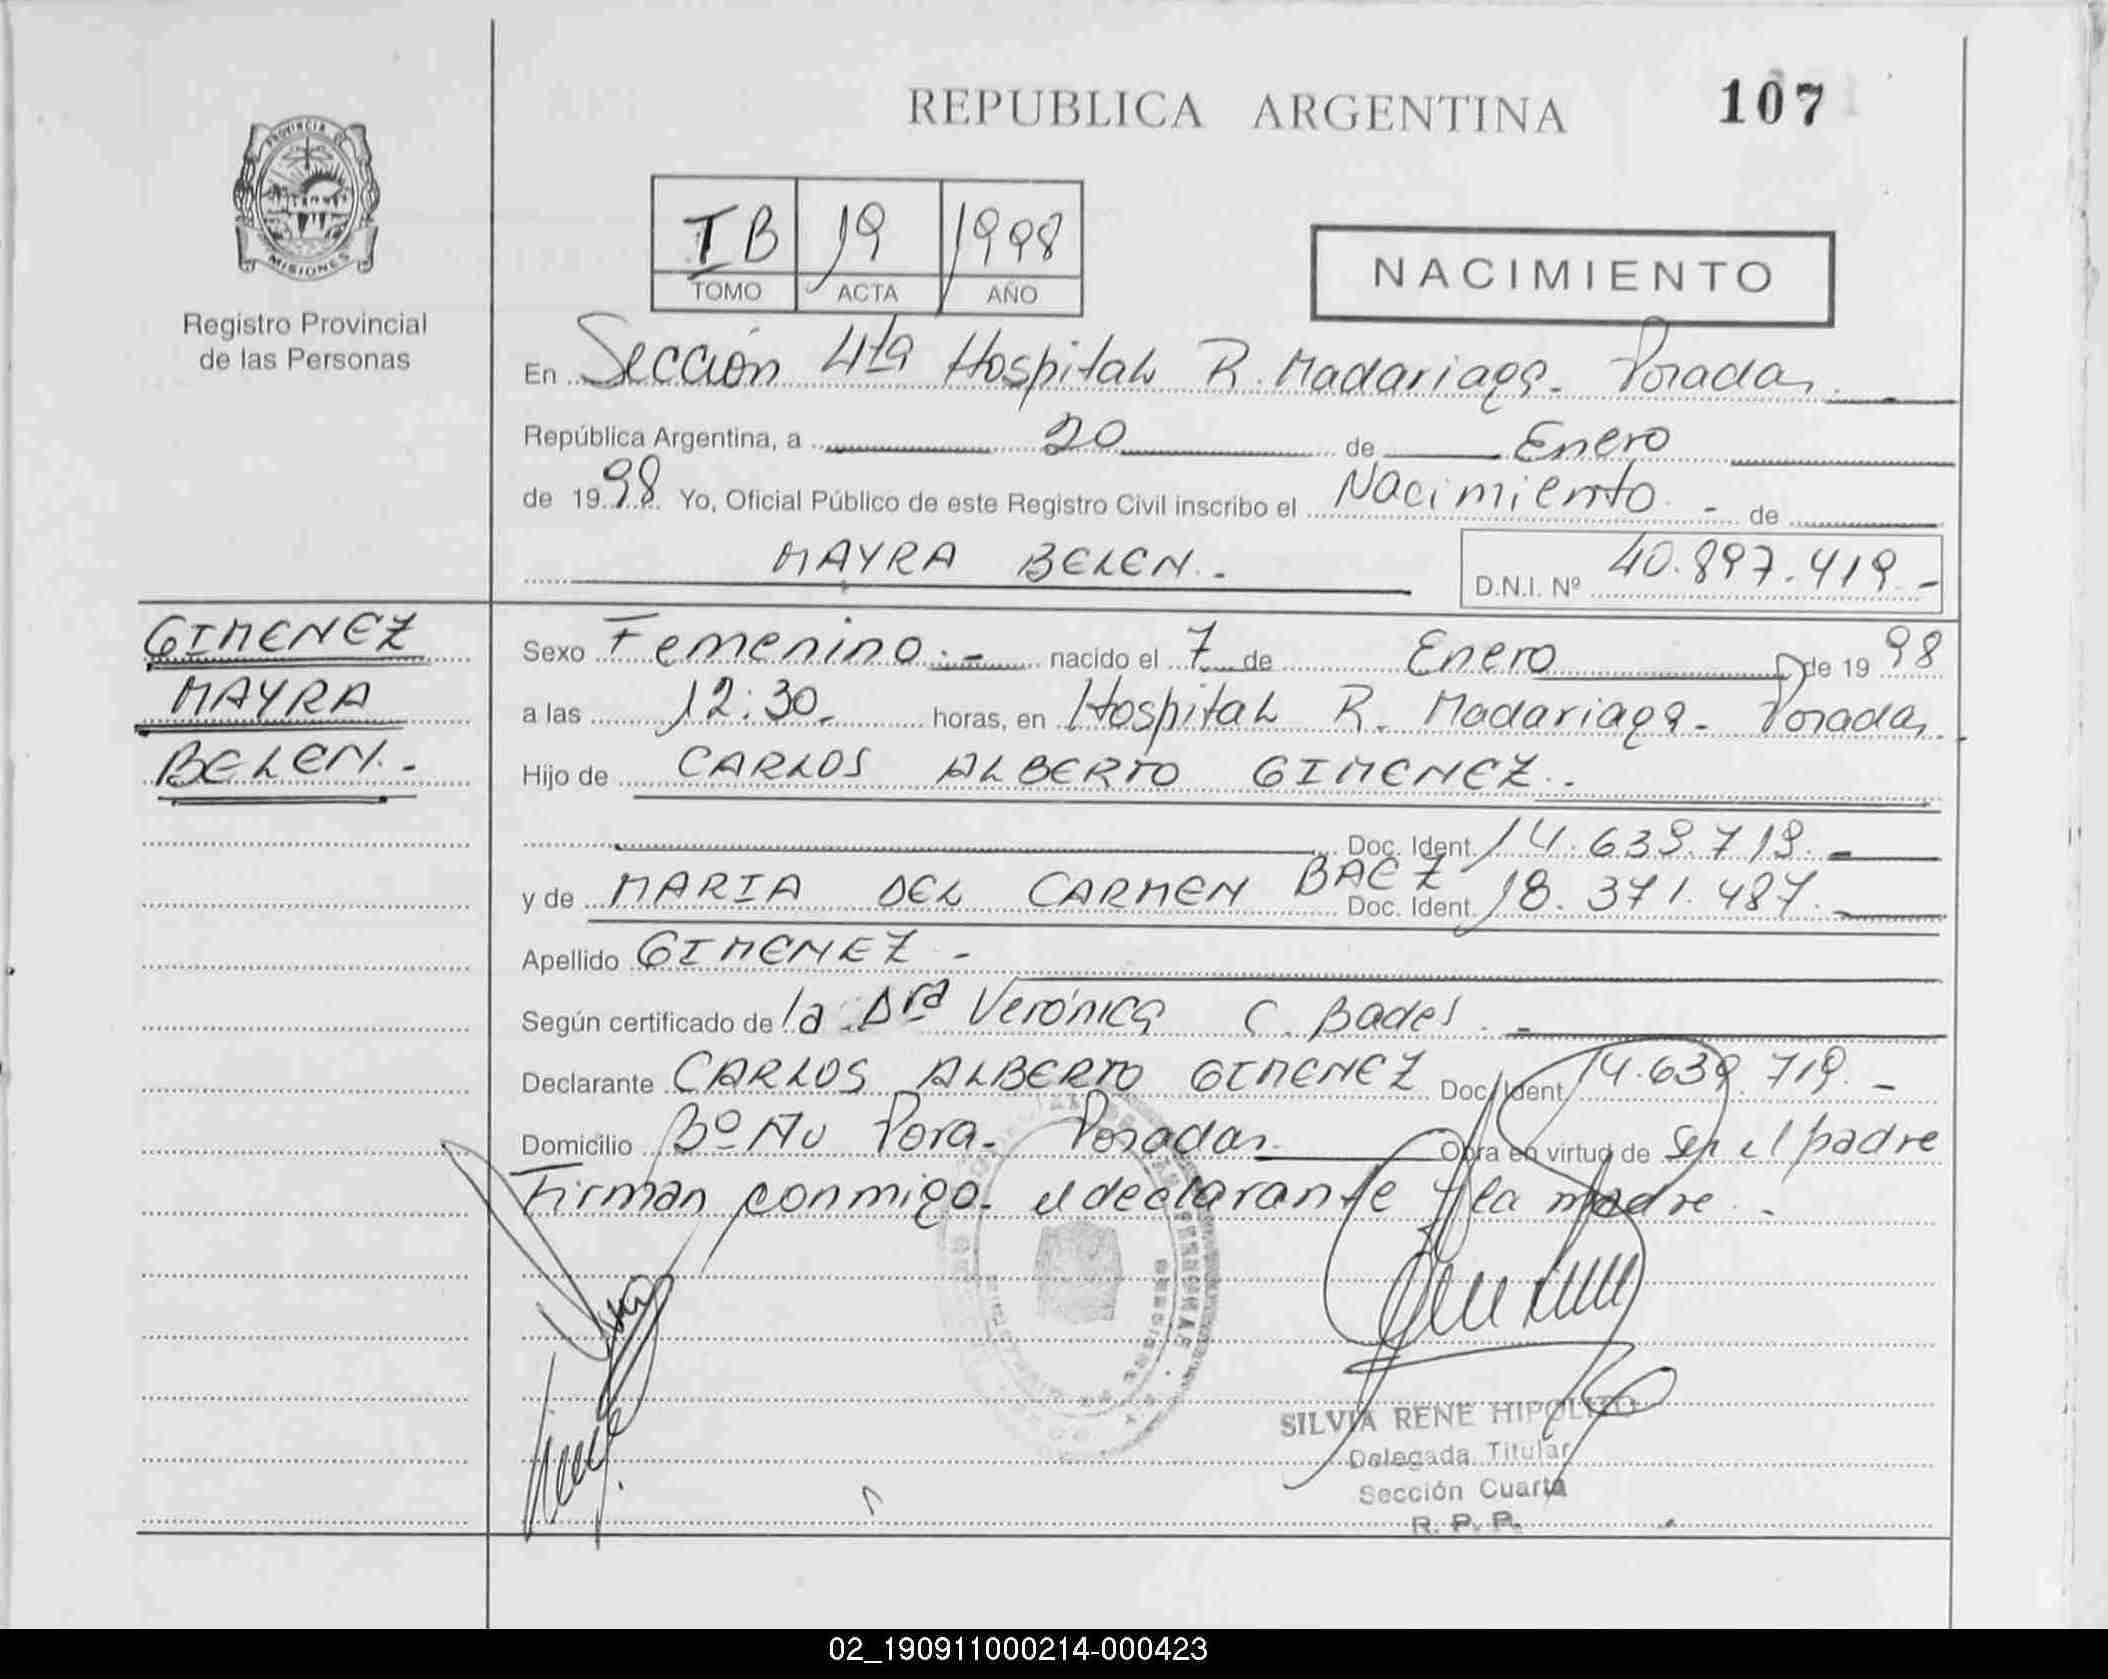 REPUBLICA ARGENTINA
107
PROVINCIA DE
MISIONES
Registro Provincial
de las Personas
IB 19 1998
TOMO ACTA AÑO
NACIMIENTO
En Sección 4ta Hospital R. Madariaga - Posadas
República Argentina, a 20 de Enero
de 1998 Yo, Oficial Público de este Registro Civil inscribo el Nacimiento - de
MAYRA BELEN.-
D.N.I. Nº 40.897.419.-
GIMENEZ
MAYRA
BELEN.-
Sexo Femenino.- nacido el 7 de Enero de 1998
a las 12:30. horas, en Hospital R. Madariaga - Posadas
Hijo de CARLOS ALBERTO GIMENEZ.-
Doc. Ident. 14.639.719.-
y de MARIA DEL CARMEN BAEZ Doc. Ident. 18.371.487.-
Apellido GIMENEZ -
Según certificado de la Dra Verónica C. Bades.-
Declarante CARLOS ALBERTO GIMENEZ Doc. Ident. 14.639.719.-
Domicilio Bº Ñu Pora - Posadas Obra en virtud de Ser el padre
Firman conmigo - el declarante y la madre.-
SILVIA RENE HIPOLITO
Delegada Titular
Sección Cuarta
R. P. P.
02_190911000214-000423